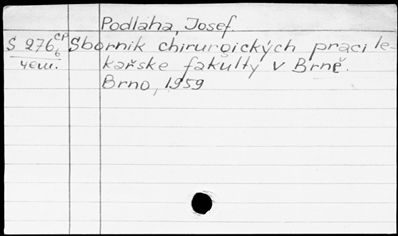 Podlaha, Josef.
S 276 CP 6 Sborník chirurgických prací le-
чет. kařske fakulty v Brně.
Brno, 1959